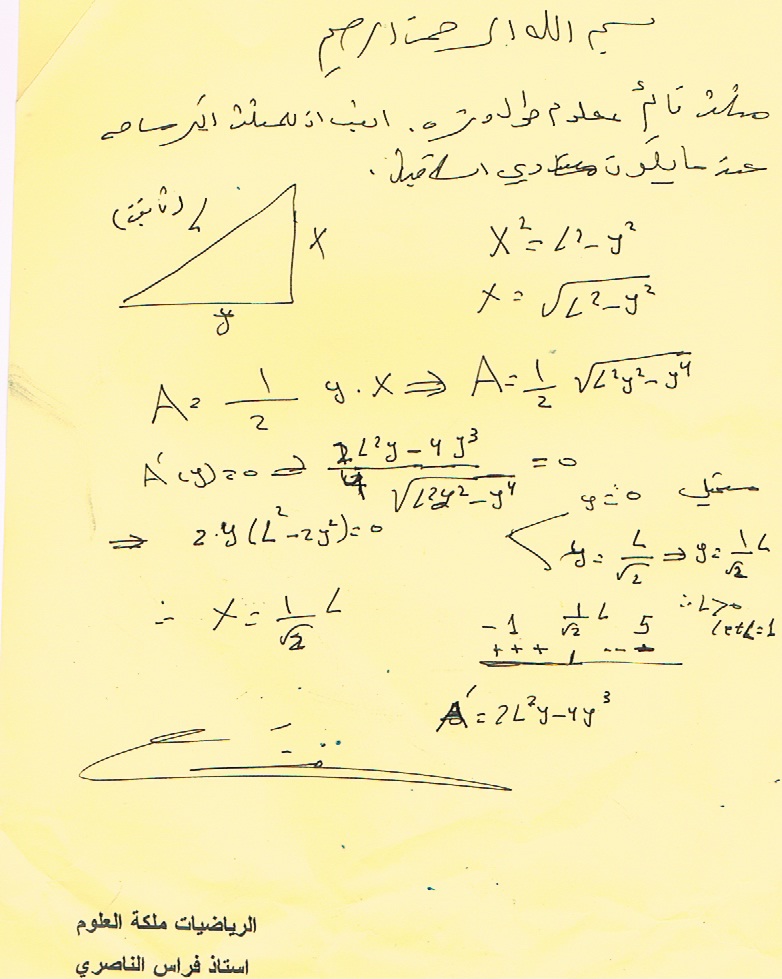 بسم الله الرحمن الرحيم
مثلث قائم معلوم طول وتره. اثبت ان للمثلث اكبر مساحه
عندما يكون متساوي الساقين.
L (ثابت)
X
y
X² = L² - y²
X = √(L² - y²)
A = 1/2 y . X ⇒ A = 1/2 √(L²y² - y⁴)
A'(y) = 0 ⇒ (2L²y - 4y³) / (4√(L²y² - y⁴)) = 0
⇒ 2 . y (L² - 2y²) = 0
y = 0 مستحيل
y = L/√2 ⇒ y = 1/√2 L
∴ X = 1/√2 L
∴ L > 0
let L = 1
-1 1/√2 L 5
+ + + - - -
A' = 2L²y - 4y³
الرياضيات ملكة العلوم
استاذ فراس الناصري